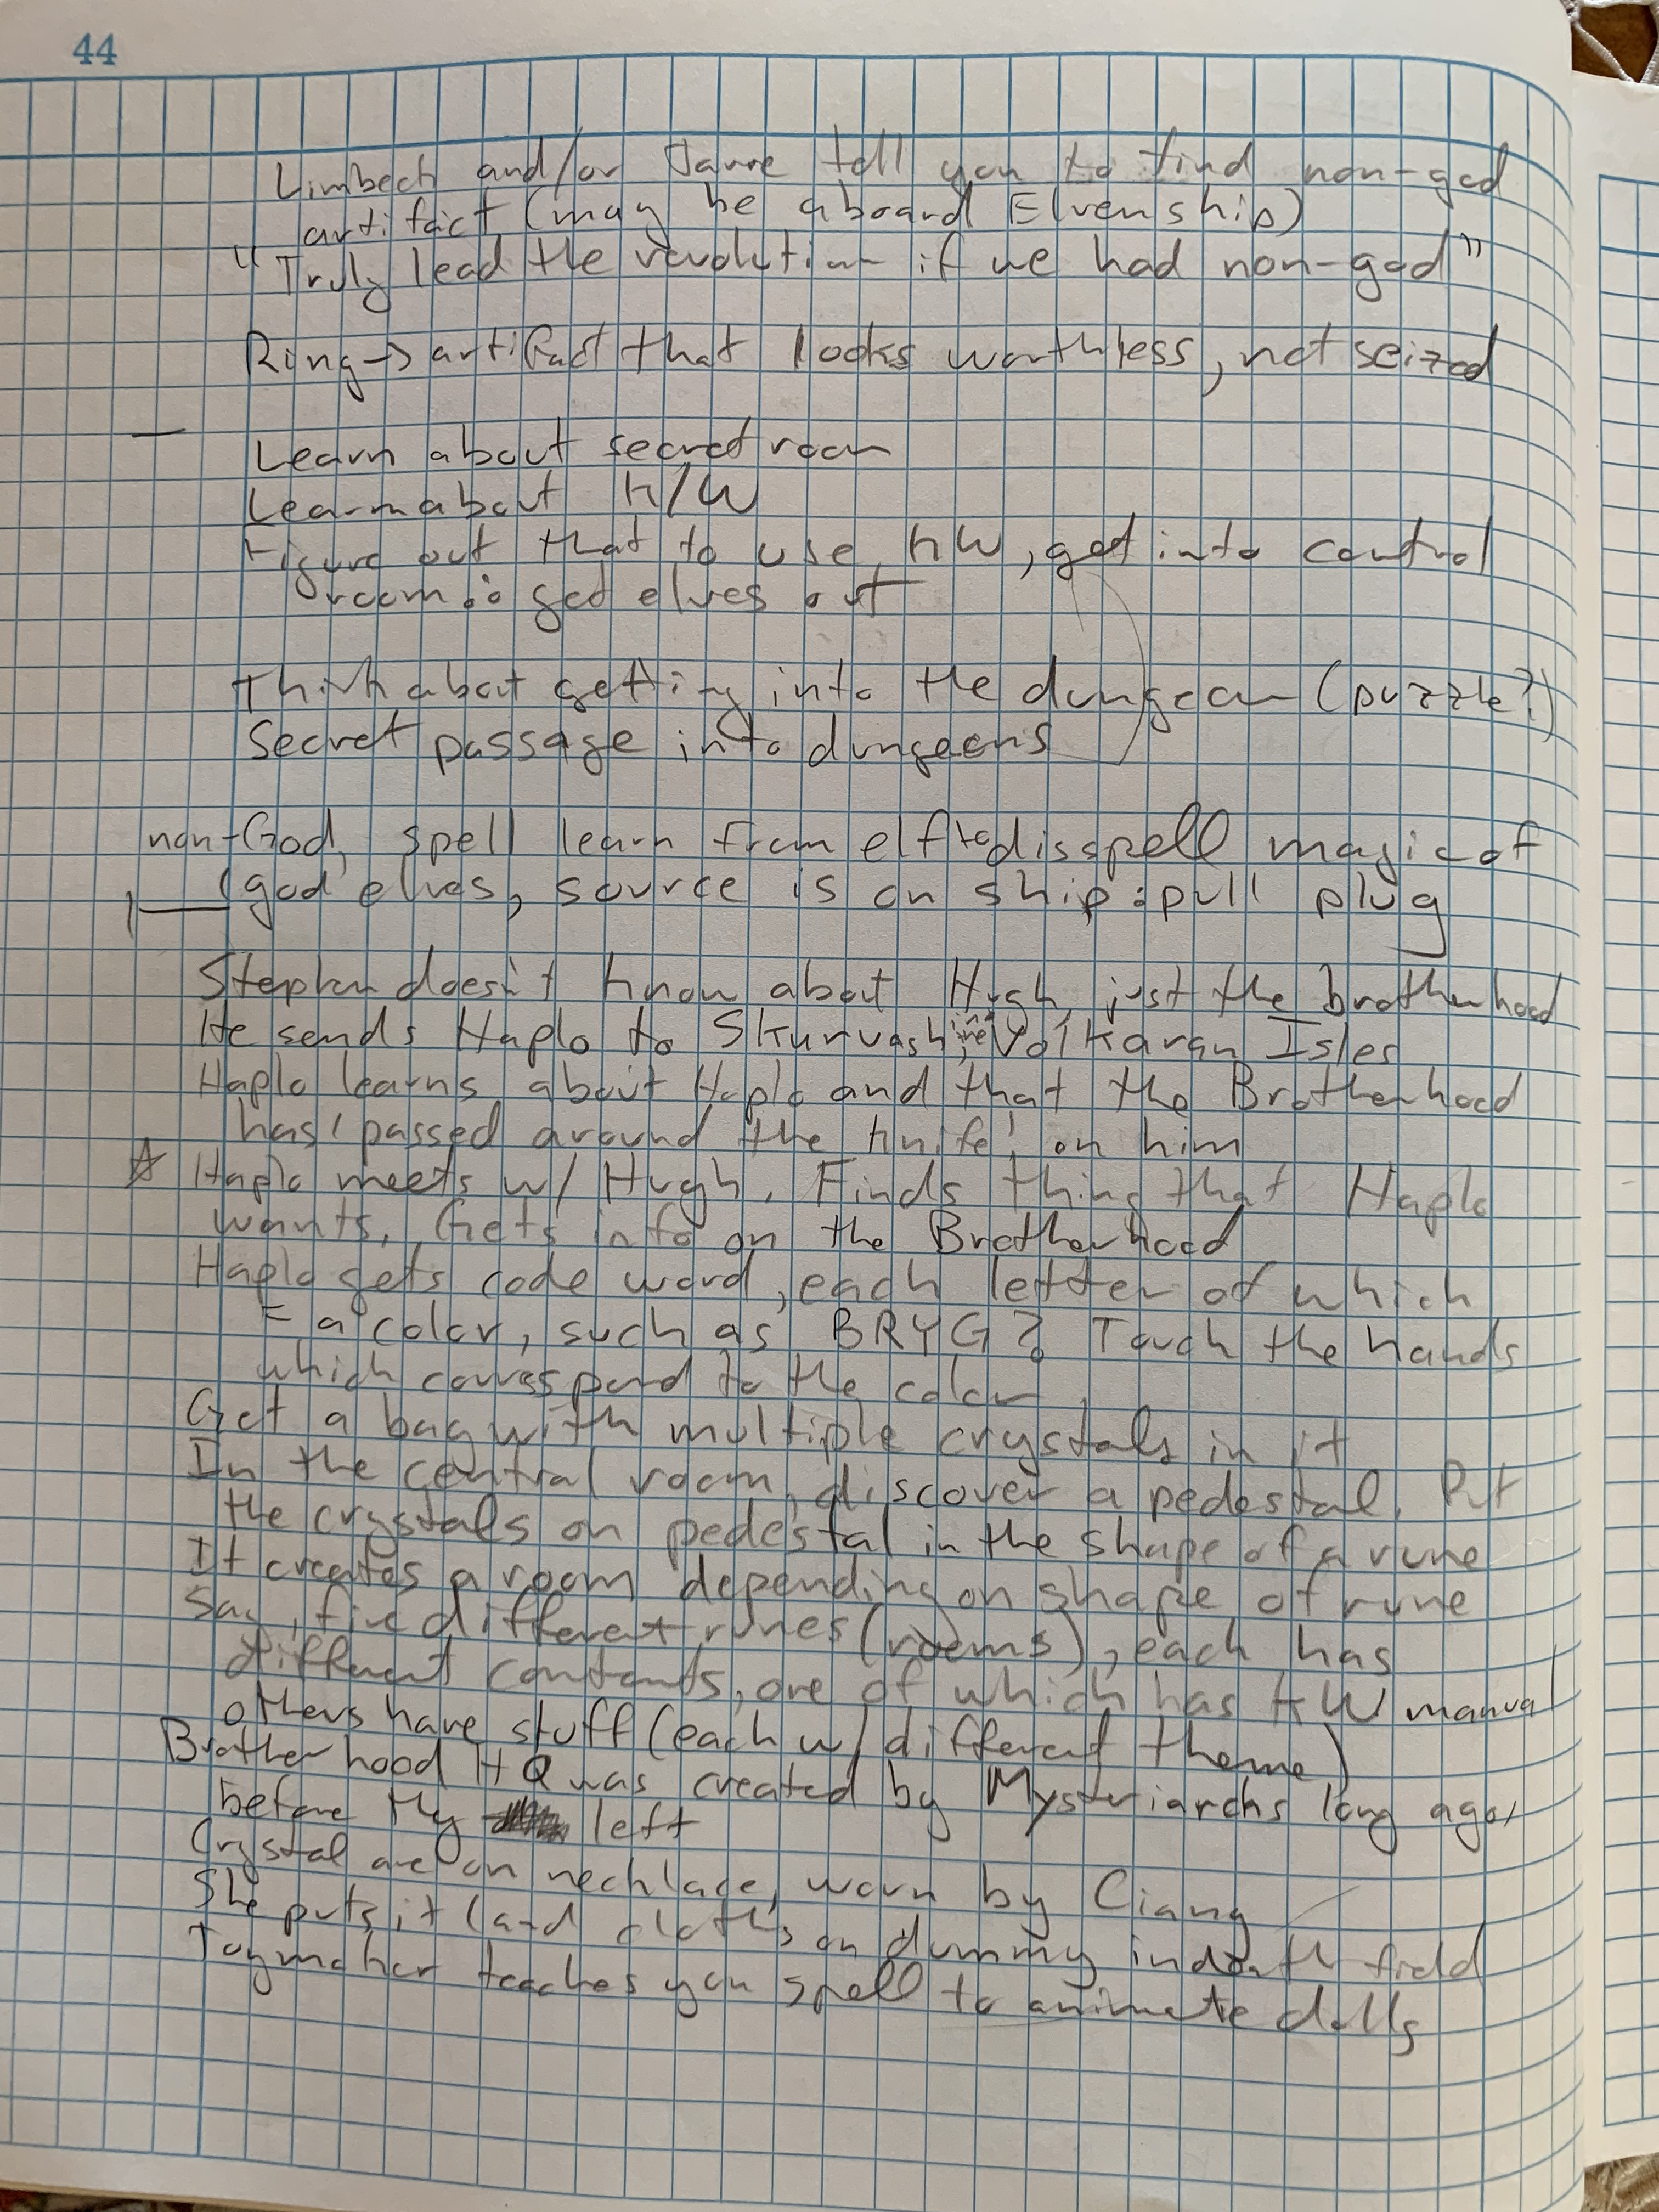 44
Limbeck and/or Jarre tell you to find non-god
artifact (may be aboard Elven ship)
"Truly lead the revolution if we had non-god"
Ring → artifact that looks worthless, not seized
Learn about secret room
Learn about K/W
Figure out that to use KW, get into control
room ∴ get elves out
Think about getting into the dungeon (puzzle?)
Secret passage into dungeons
non-God, spell learn from elf to disspell magic of
'god' elves, source is on ship: pull plug
Stephen doesn't know about Hugh, just the brotherhood
He sends Haplo to Skurvash, in the Volkaran Isles
Haplo learns about Haplo and that the Brotherhood
has 'passed around the knife' on him
☆ Haplo meets w/ Hugh. Finds thing that Haplo
wants. Gets info on the Brotherhood
Haplo gets code word, each letter of which
= a color, such as BRYG? Touch the hands
which correspond to the color
Get a bag with multiple crystals in it
In the central room, discover a pedestal. Put
the crystals on pedestal in the shape of a rune
It creates a room depending on shape of rune
Say, five different runes (rooms), each has
different contents, one of which has KW manual
others have stuff (each w/ different theme)
Brotherhood HQ was created by Mysteriarchs long ago,
before they left
Crystal are on necklace, worn by Ciang
She puts it (and cloths on dummy in death field
Toymaker teaches you spell to animate dolls